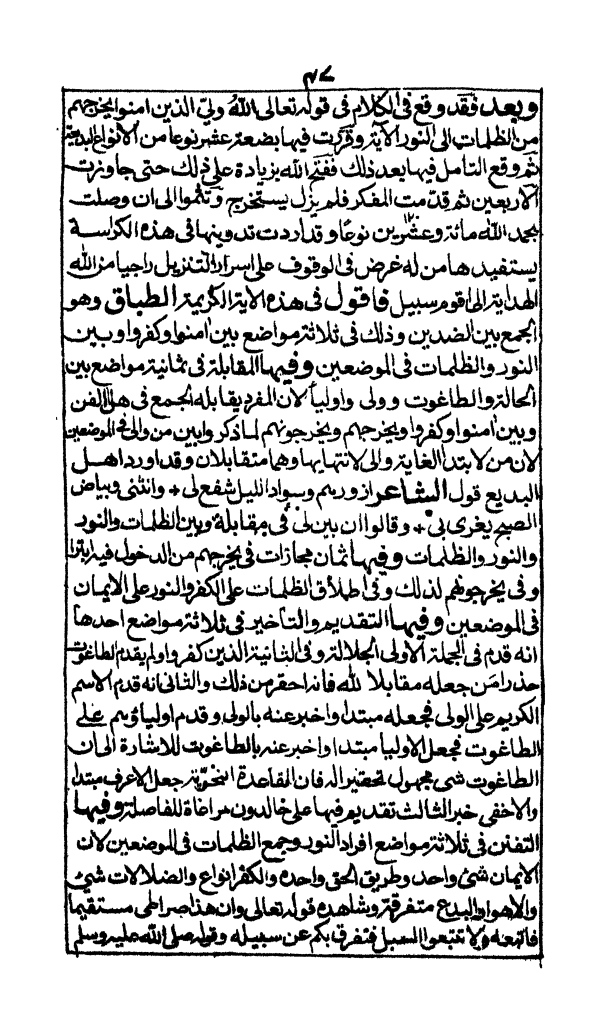 ٤٧
وبعد فقد وقع فى الكلام فى قوله تعالى الله ولىّ الذين امنوا يخرجهم
من الظلمات الى النور الآية وقررت فيها بضعة عشر نوعا من الانواع البديعية
ثم وقع التامل فيها بعد ذلك ففتح الله بزيادة على ذلك حتى جاوزت
الاربعين ثم قدمت المفكر فلم يزل يستخرج وتنموا الى ان وصلت
بحمد الله مائة وعشرين نوعًا وقد اردت تدوينها فى هذه الكراسة
يستفيدها من له غرض فى الوقوف على اسرار التنزيل راجيا من الله
الهداية الى اقوم سبيل فاقول فى هذه الاية الكريمة الطباق وهو
الجمع بين الضدين وذلك فى ثلاثة مواضع بين امنوا وكفروا وبين
النور والظلمات فى الموضعين وفيها المقابلة فى ثمانية مواضع بين
الجالة والطاغوت وولى واولياء لان المفرد يقابله الجمع فى هذا الفن
وبين امنوا وكفروا ويخرجهم ويخرجونهم لما ذكر وابين من والى فى الموضعين
لان من لابتدا الغاية والى لانتهايها وهما متقابلان وقد اورد اهل
البديع قول الشاعر ازورهم وسواد الليل شفع لى + وانثنى وبياض
الصبح يغرى بى + وقالوا ان بين لى فى مقابلة وبين الظلمات والنور
والنور والظلمات وفيها ثمان مجازات فى يخرجهم من الدخول فيه ابتدا
وفى يخرجونهم لذلك وفى اطلاق الظلمات على الكفر والنور على الايمان
فى الموضعين وفيها التقديم والتاخير فى ثلاثة مواضع احدها
انه قدم فى الجملة الاولى الجلالة وفى الثانية الذين كفروا ولم يقدم الطاغوت
حذرا من جعله مقابلا لله فانه احقر من ذلك والثانى انه قدم الاسم
الكريم على الولى فجعله مبتدا واخبر عنه بالولى وقدم اولياؤهم على
الطاغوت فجعل الاوليا مبتدا واخبر عنه بالطاغوت للاشارة الى ان
الطاغوت شى مجهول تحقيرا له فان القاعدة النحوية جعل الاعرف مبتدا
والاخفى خبر الثالث تقديم فيها على خالدون مراعاة للفاصلة وفيها
التفنن فى ثلاثة مواضع افراد النور وجمع الظلمات فى الموضعين لان
الايمان شئ واحد وطريق الحق واحدة والكفر انواع والضلالات شتى
والاهوا والبدع متفرقة وشاهده قوله تعالى وان هذا صراطى مستقيما
فاتبعوه ولا تتبعوا السبل فتفرق بكم عن سبيله وقوله صلى الله عليه وسلم